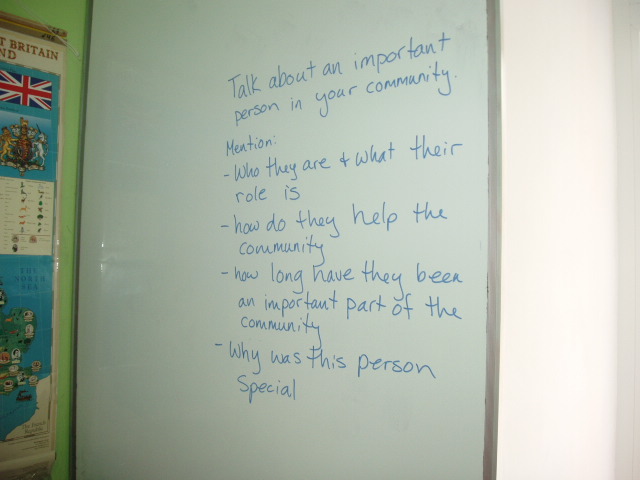 T BRITAIN
ND
THE
NORTH
SEA
Talk about an important
person in your community.
Mention:
- Who they are & what their
role is
- how do they help the
community
- how long have they been
an important part of the
community
- Why was this person
Special